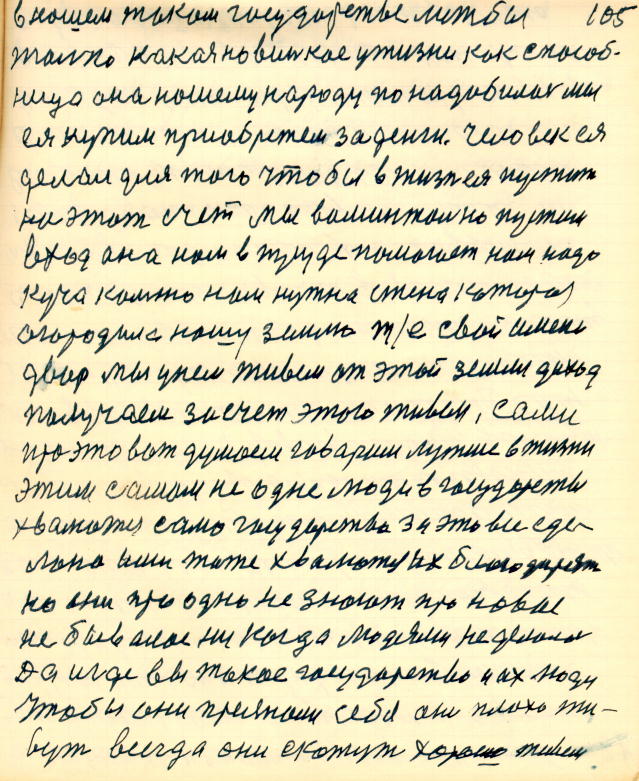 в нашем таком государстве лиж бы 105
только какая новинкое у жизни как способ-
ница она нашему народу понадобилас мы
ея купим приобретем за денги. Человек ея
делал для того чтобы в жизн ея пустит
на этот счет мы
вход она нам в труде помогает нам надо
куча камню нам нужна стена которая
огородила нашу землю т/е свой имени
двор мы у нем живем от этой земли доход
получаем за счет этого живем, сами
про это вот думаем говарим лутше в жизни
этим самам не одне люди в государстве
хвалются само государство за это все сде-
лано ими тоже хвалются их благодарят
но они про одно не знают про новае
не бывалое никогда людями не делалос
Да и где вы такое государство и их люди
чтобы они презнали себя они плохо жи-
вут всегда они скажут хорошо живем